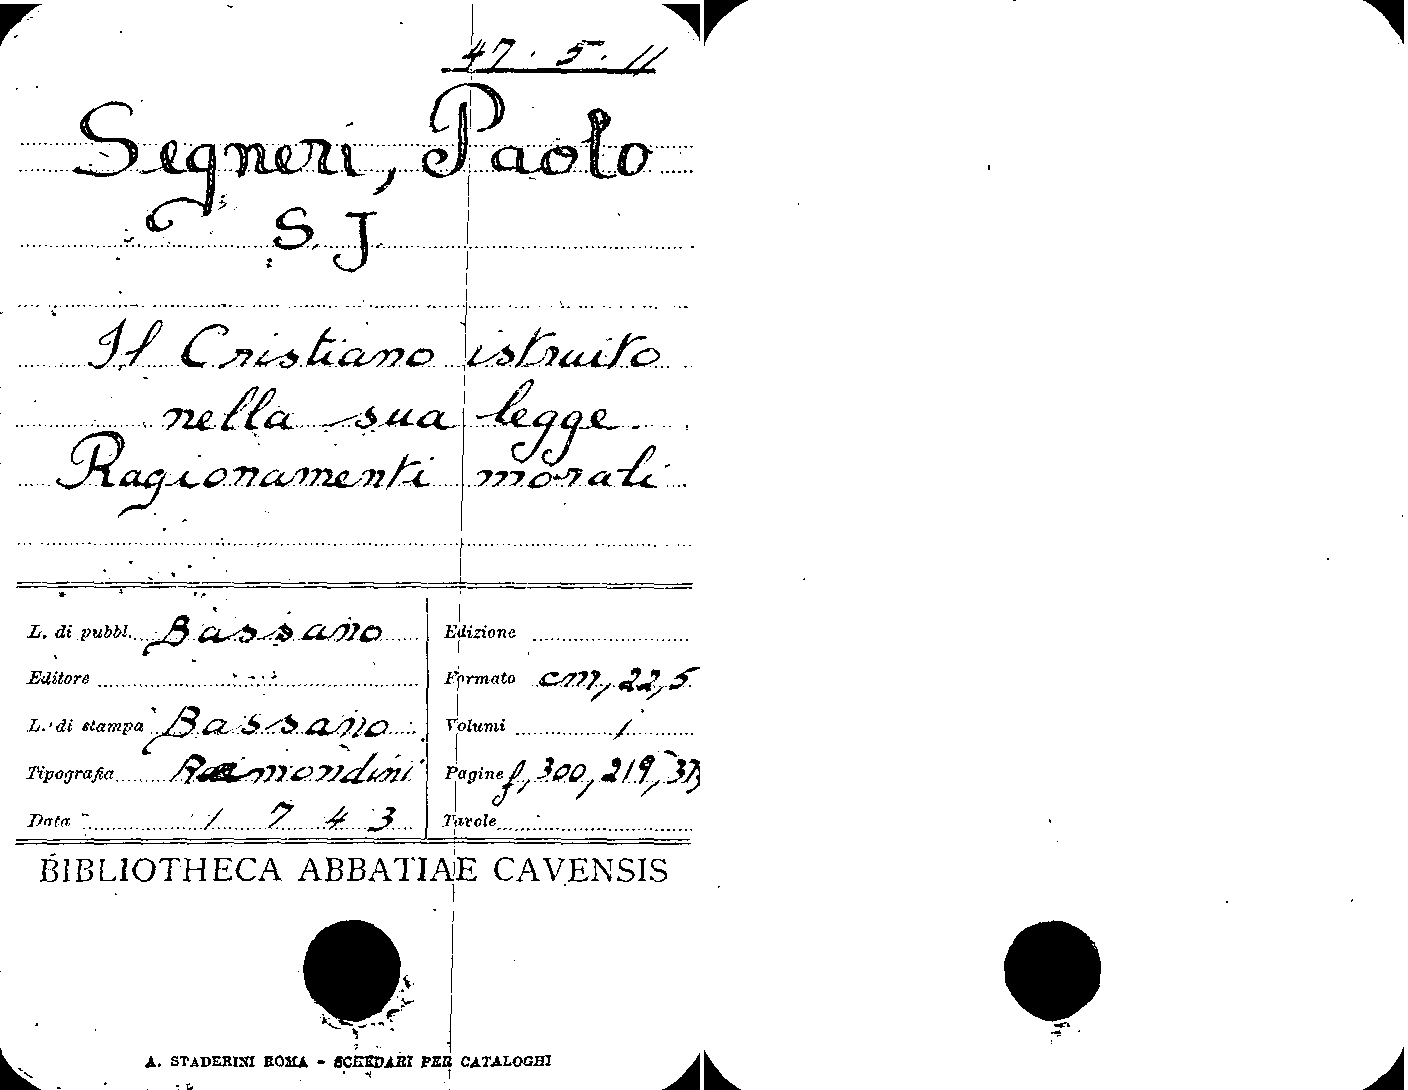 47. 5. 11
Segneri, Paolo
S. J.
Il Cristiano istruito
nella sua legge.
Ragionamenti morali
L. di pubbl. Bassano
Editore
L. di stampa Bassano
Tipografia Remondini
Data 1743
Edizione
Formato cm, 22,5
Volumi 1
Pagine f, 300, 219,
Tavole
BIBLIOTHECA ABBATIAE CAVENSIS
A. STADERINI ROMA - SCHEDARI PER CATALOGHI